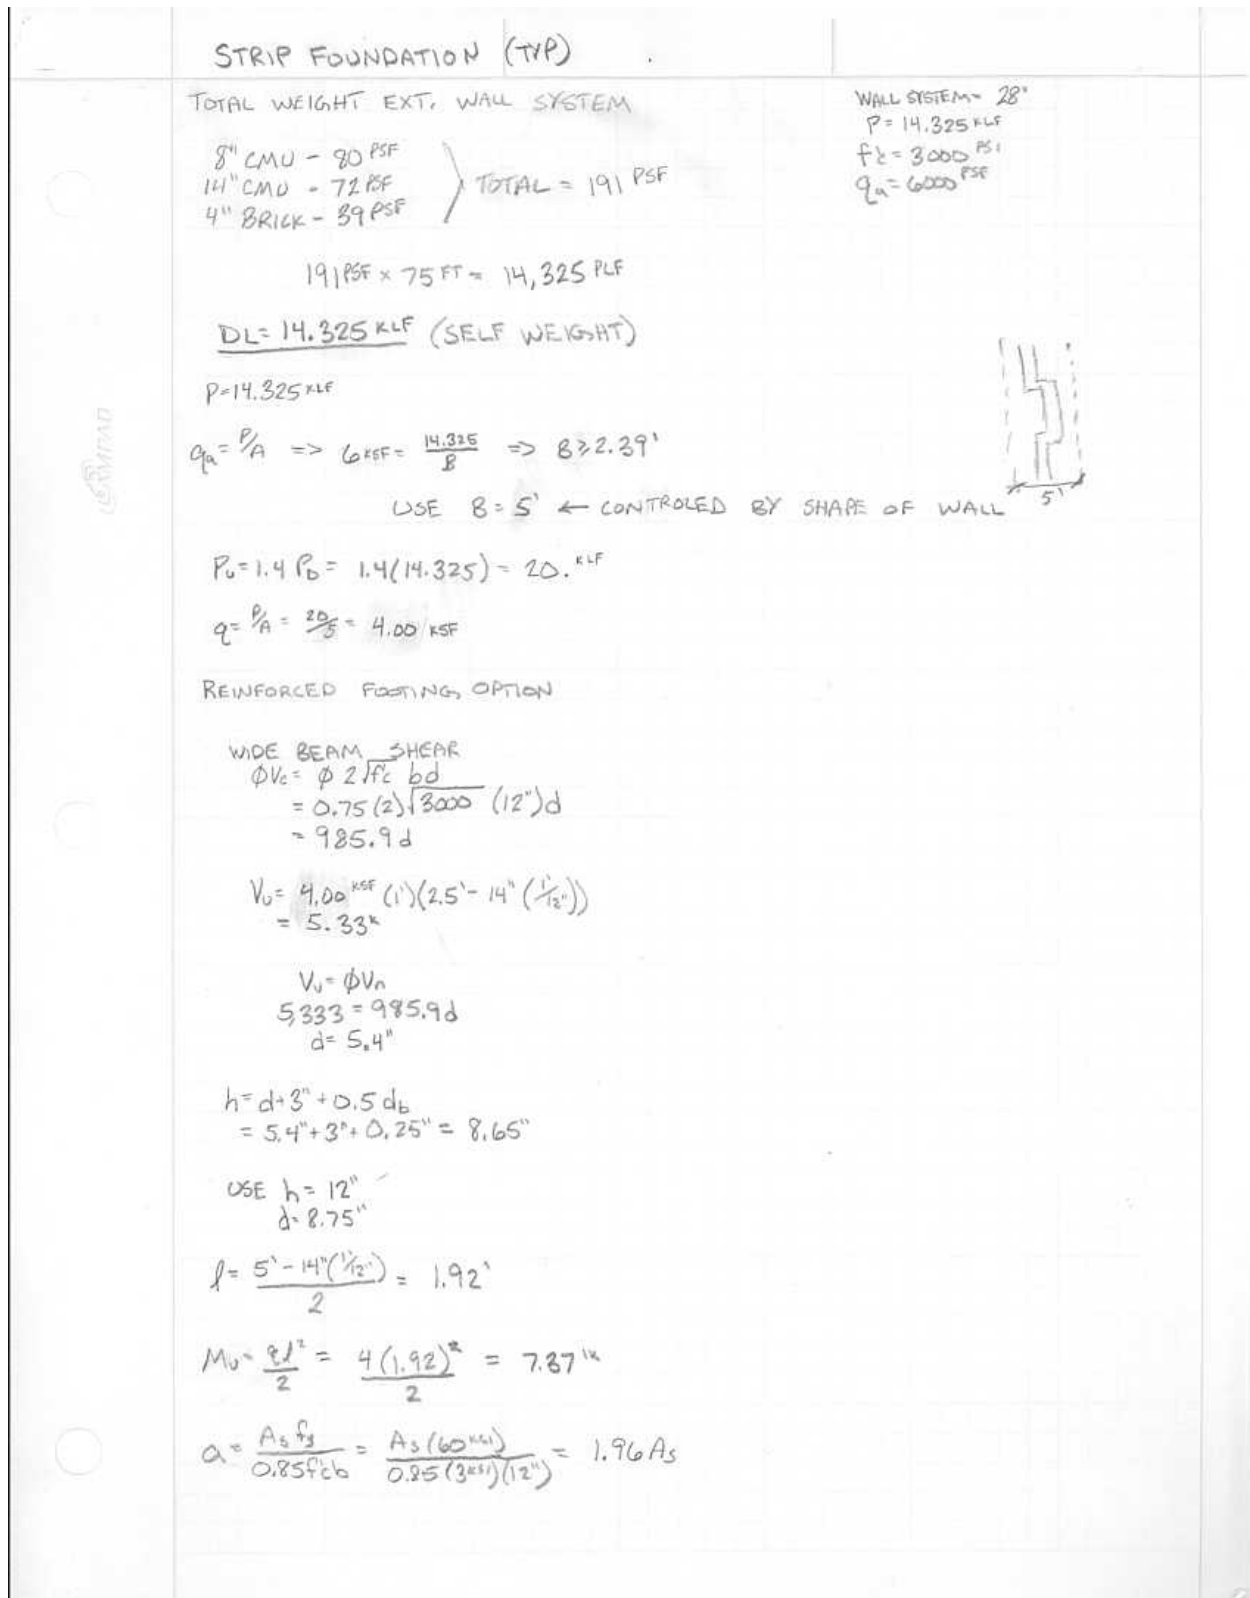 STRIP FOUNDATION (TYP)
TOTAL WEIGHT EXT. WALL SYSTEM
WALL SYSTEM = 28"
P = 14.325 KLF
f'c = 3000 PSI
qa = 6000 PSF
8" CMU - 80 PSF
14" CMU - 72 PSF
4" BRICK - 39 PSF
TOTAL = 191 PSF
191 PSF × 75 FT = 14,325 PLF
DL = 14.325 KLF (SELF WEIGHT)
P = 14.325 KLF
qa = P/A => 6 KSF = 14.325/B => B ≥ 2.39'
USE B = 5' ← CONTROLED BY SHAPE OF WALL
5'
Pu = 1.4 PD = 1.4(14.325) = 20. KLF
q = P/A = 20/5 = 4.00 KSF
REINFORCED FOOTING OPTION
WIDE BEAM SHEAR
φVc = φ 2√f'c bd
= 0.75 (2)√3000 (12")d
= 985.9d
Vu = 4.00 KSF (1')(2.5' - 14" (1'/12"))
= 5.33k
Vu = φVn
5,333 = 985.9d
d = 5.4"
h = d + 3" + 0.5 db
= 5.4" + 3" + 0.25" = 8.65"
USE h = 12"
d = 8.75"
l = (5' - 14"(1'/12"))/2 = 1.92'
Mu = ql²/2 = 4(1.92)²/2 = 7.37 'k
a = As fy/0.85f'cb = As (60 KSI)/0.85 (3 KSI)(12") = 1.96 As